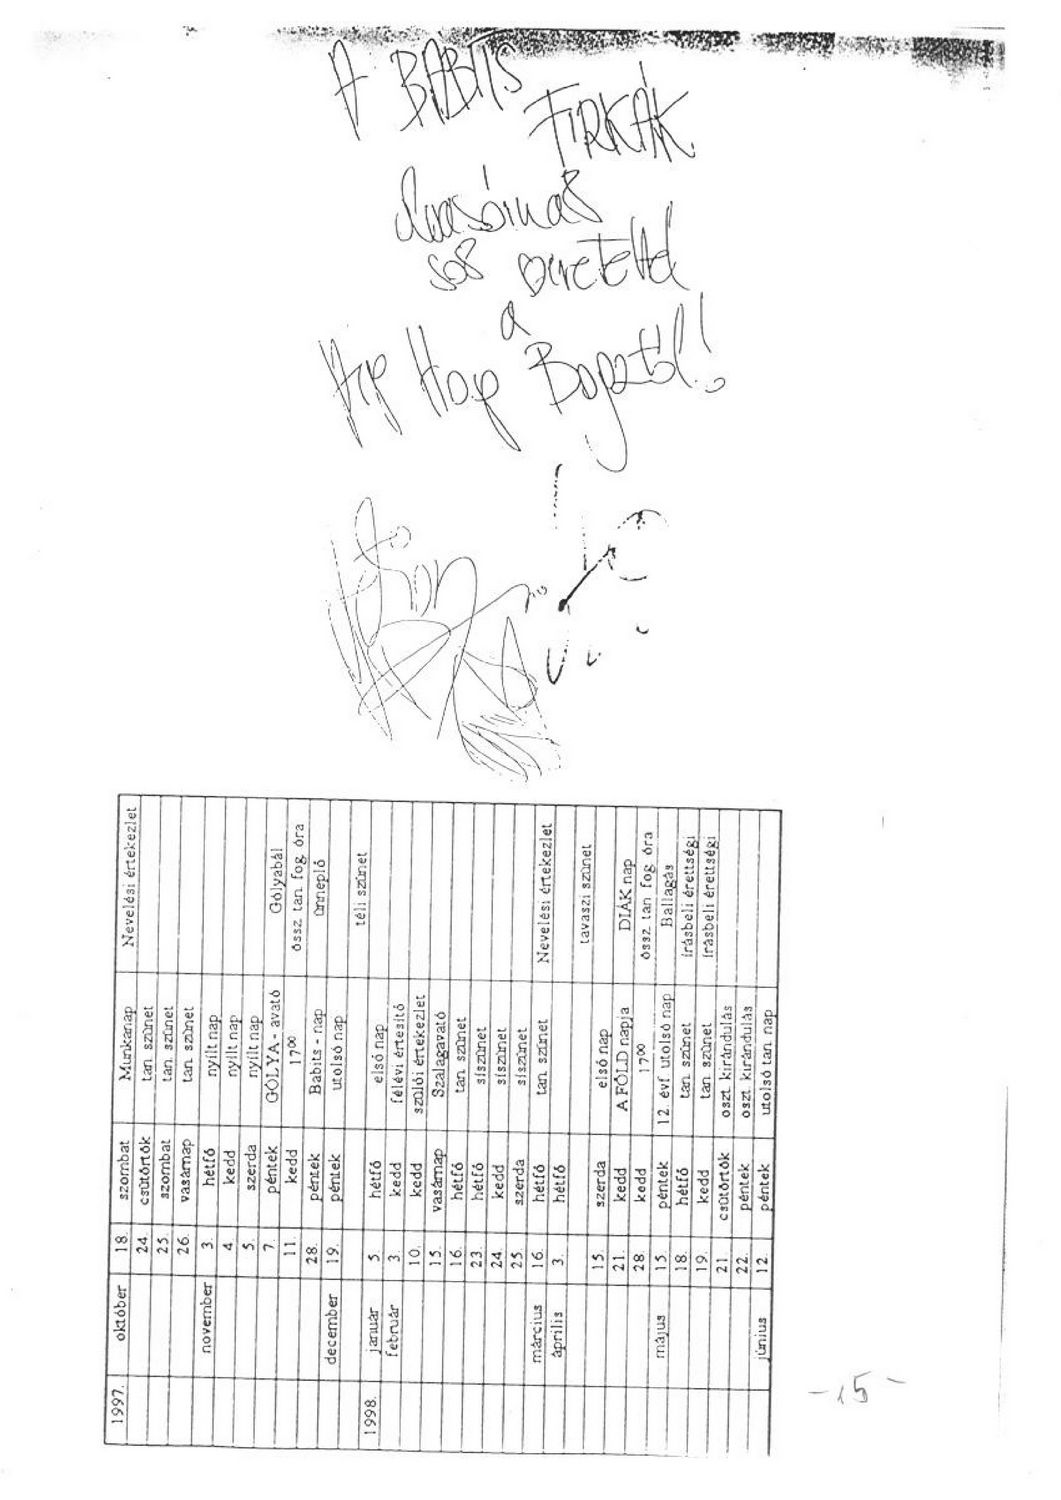 A BABITS
FIRKÁK
olvasóinak
sok szeretettel
a
Hip Hop Boyztól!
1997. október 18. szombat Munkanap Nevelési értekezlet
24. csütörtök tan. szünet
25. szombat tan. szünet
26. vasárnap tan. szünet
november 3. hétfő nyílt nap
4. kedd nyílt nap
5. szerda nyílt nap
7. péntek GÓLYA - avató Gólyabál
11. kedd 17⁰⁰ össz. tan. fog. óra
28. péntek Babits - nap ünneplő
december 19. péntek utolsó nap
téli szünet
1998. január 5. hétfő első nap
február 3. kedd félévi értesítő
10. kedd szülői értekezlet
15. vasárnap Szalagavató
16. hétfő tan. szünet
23. hétfő síszünet
24. kedd síszünet
25. szerda síszünet
március 16. hétfő tan. szünet Nevelési értekezlet
április 3. hétfő
tavaszi szünet
15. szerda első nap
21. kedd A FÖLD napja DIÁK nap
28. kedd 17⁰⁰ össz. tan. fog. óra
május 15. péntek 12. évf. utolsó nap Ballagás
18. hétfő tan. szünet írásbeli érettségi
19. kedd tan. szünet írásbeli érettségi
21. csütörtök oszt. kirándulás
22. péntek oszt. kirándulás
június 12. péntek utolsó tan. nap
- 15 -